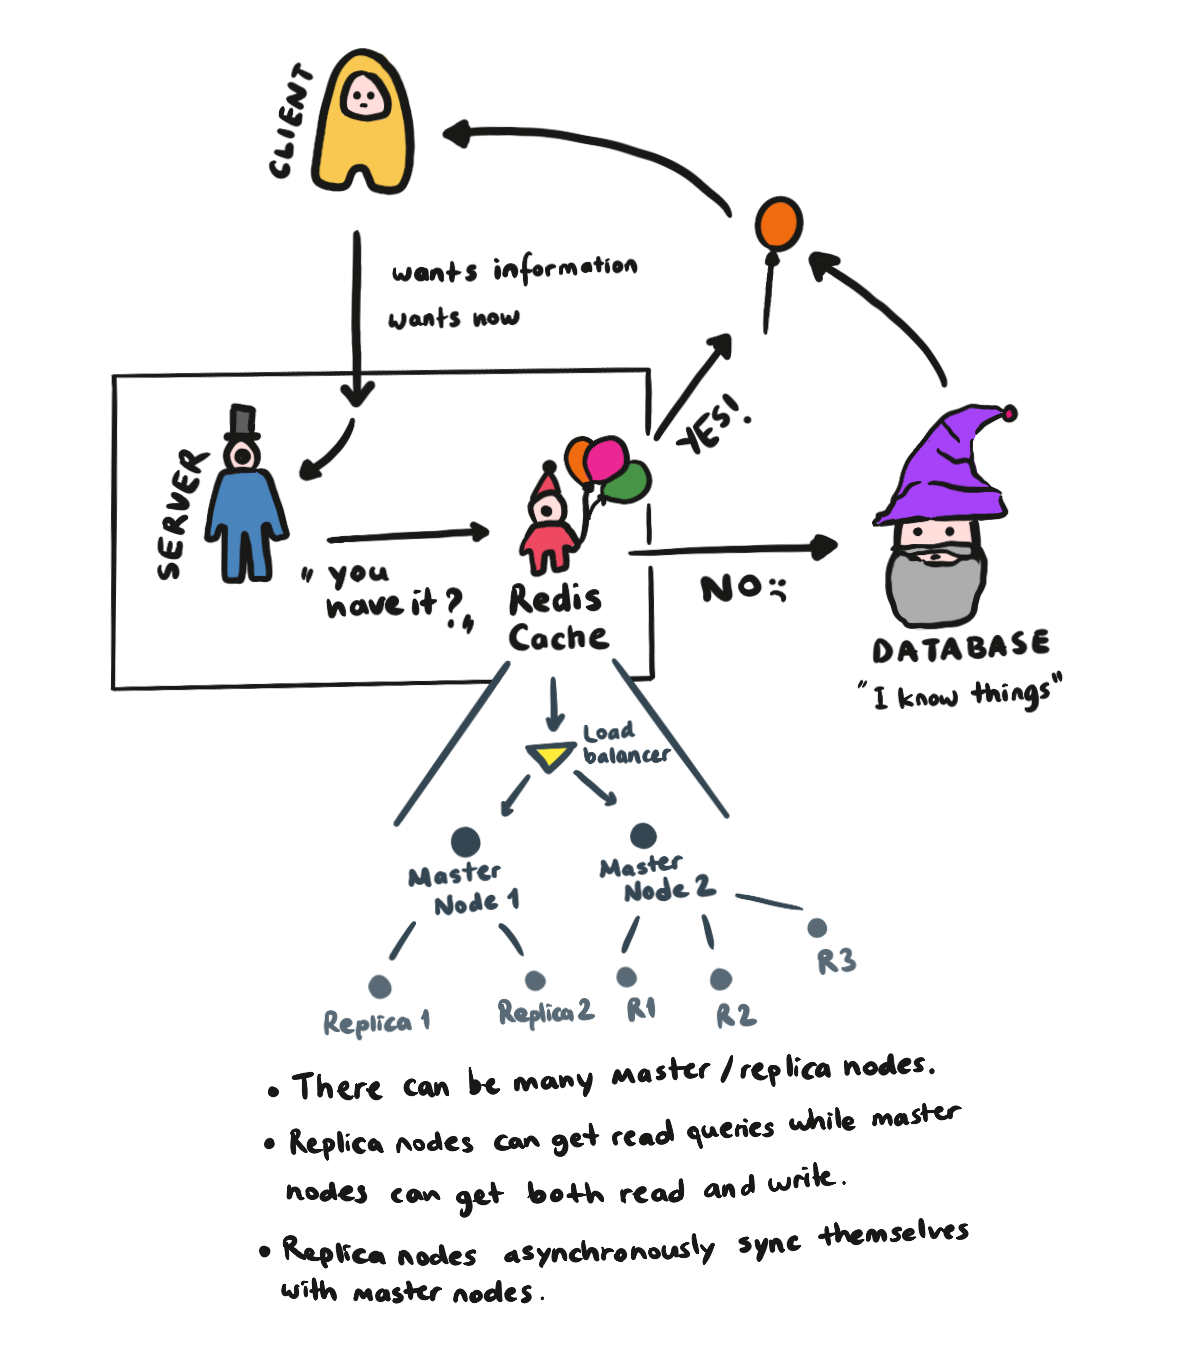 CLIENT
wants information
wants now
SERVER
"you
have it?"
Redis
Cache
YES!
NO :(
DATABASE
"I know things"
Load
balancer
Master
Node 1
Master
Node 2
Replica 1
Replica 2
R1
R2
R3
• There can be many master/replica nodes.
• Replica nodes can get read queries while master
nodes can get both read and write.
• Replica nodes asynchronously sync themselves
with master nodes.